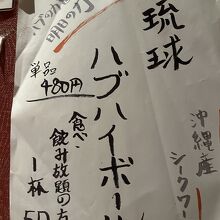 琉球
ハブハイボール
沖縄産
シークワー
ハブのか
明の力
単品
480円
食べ・
飲み放題の方
1杯
50